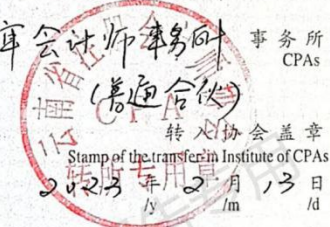 会计师事务所 事务所
CPAs
(普通合伙)
云南省注册会
CPA
转所专用章
转入协会盖章
Stamp of the transfer-in Institute of CPAs
2023 年 2 月 13 日
/y /m /d